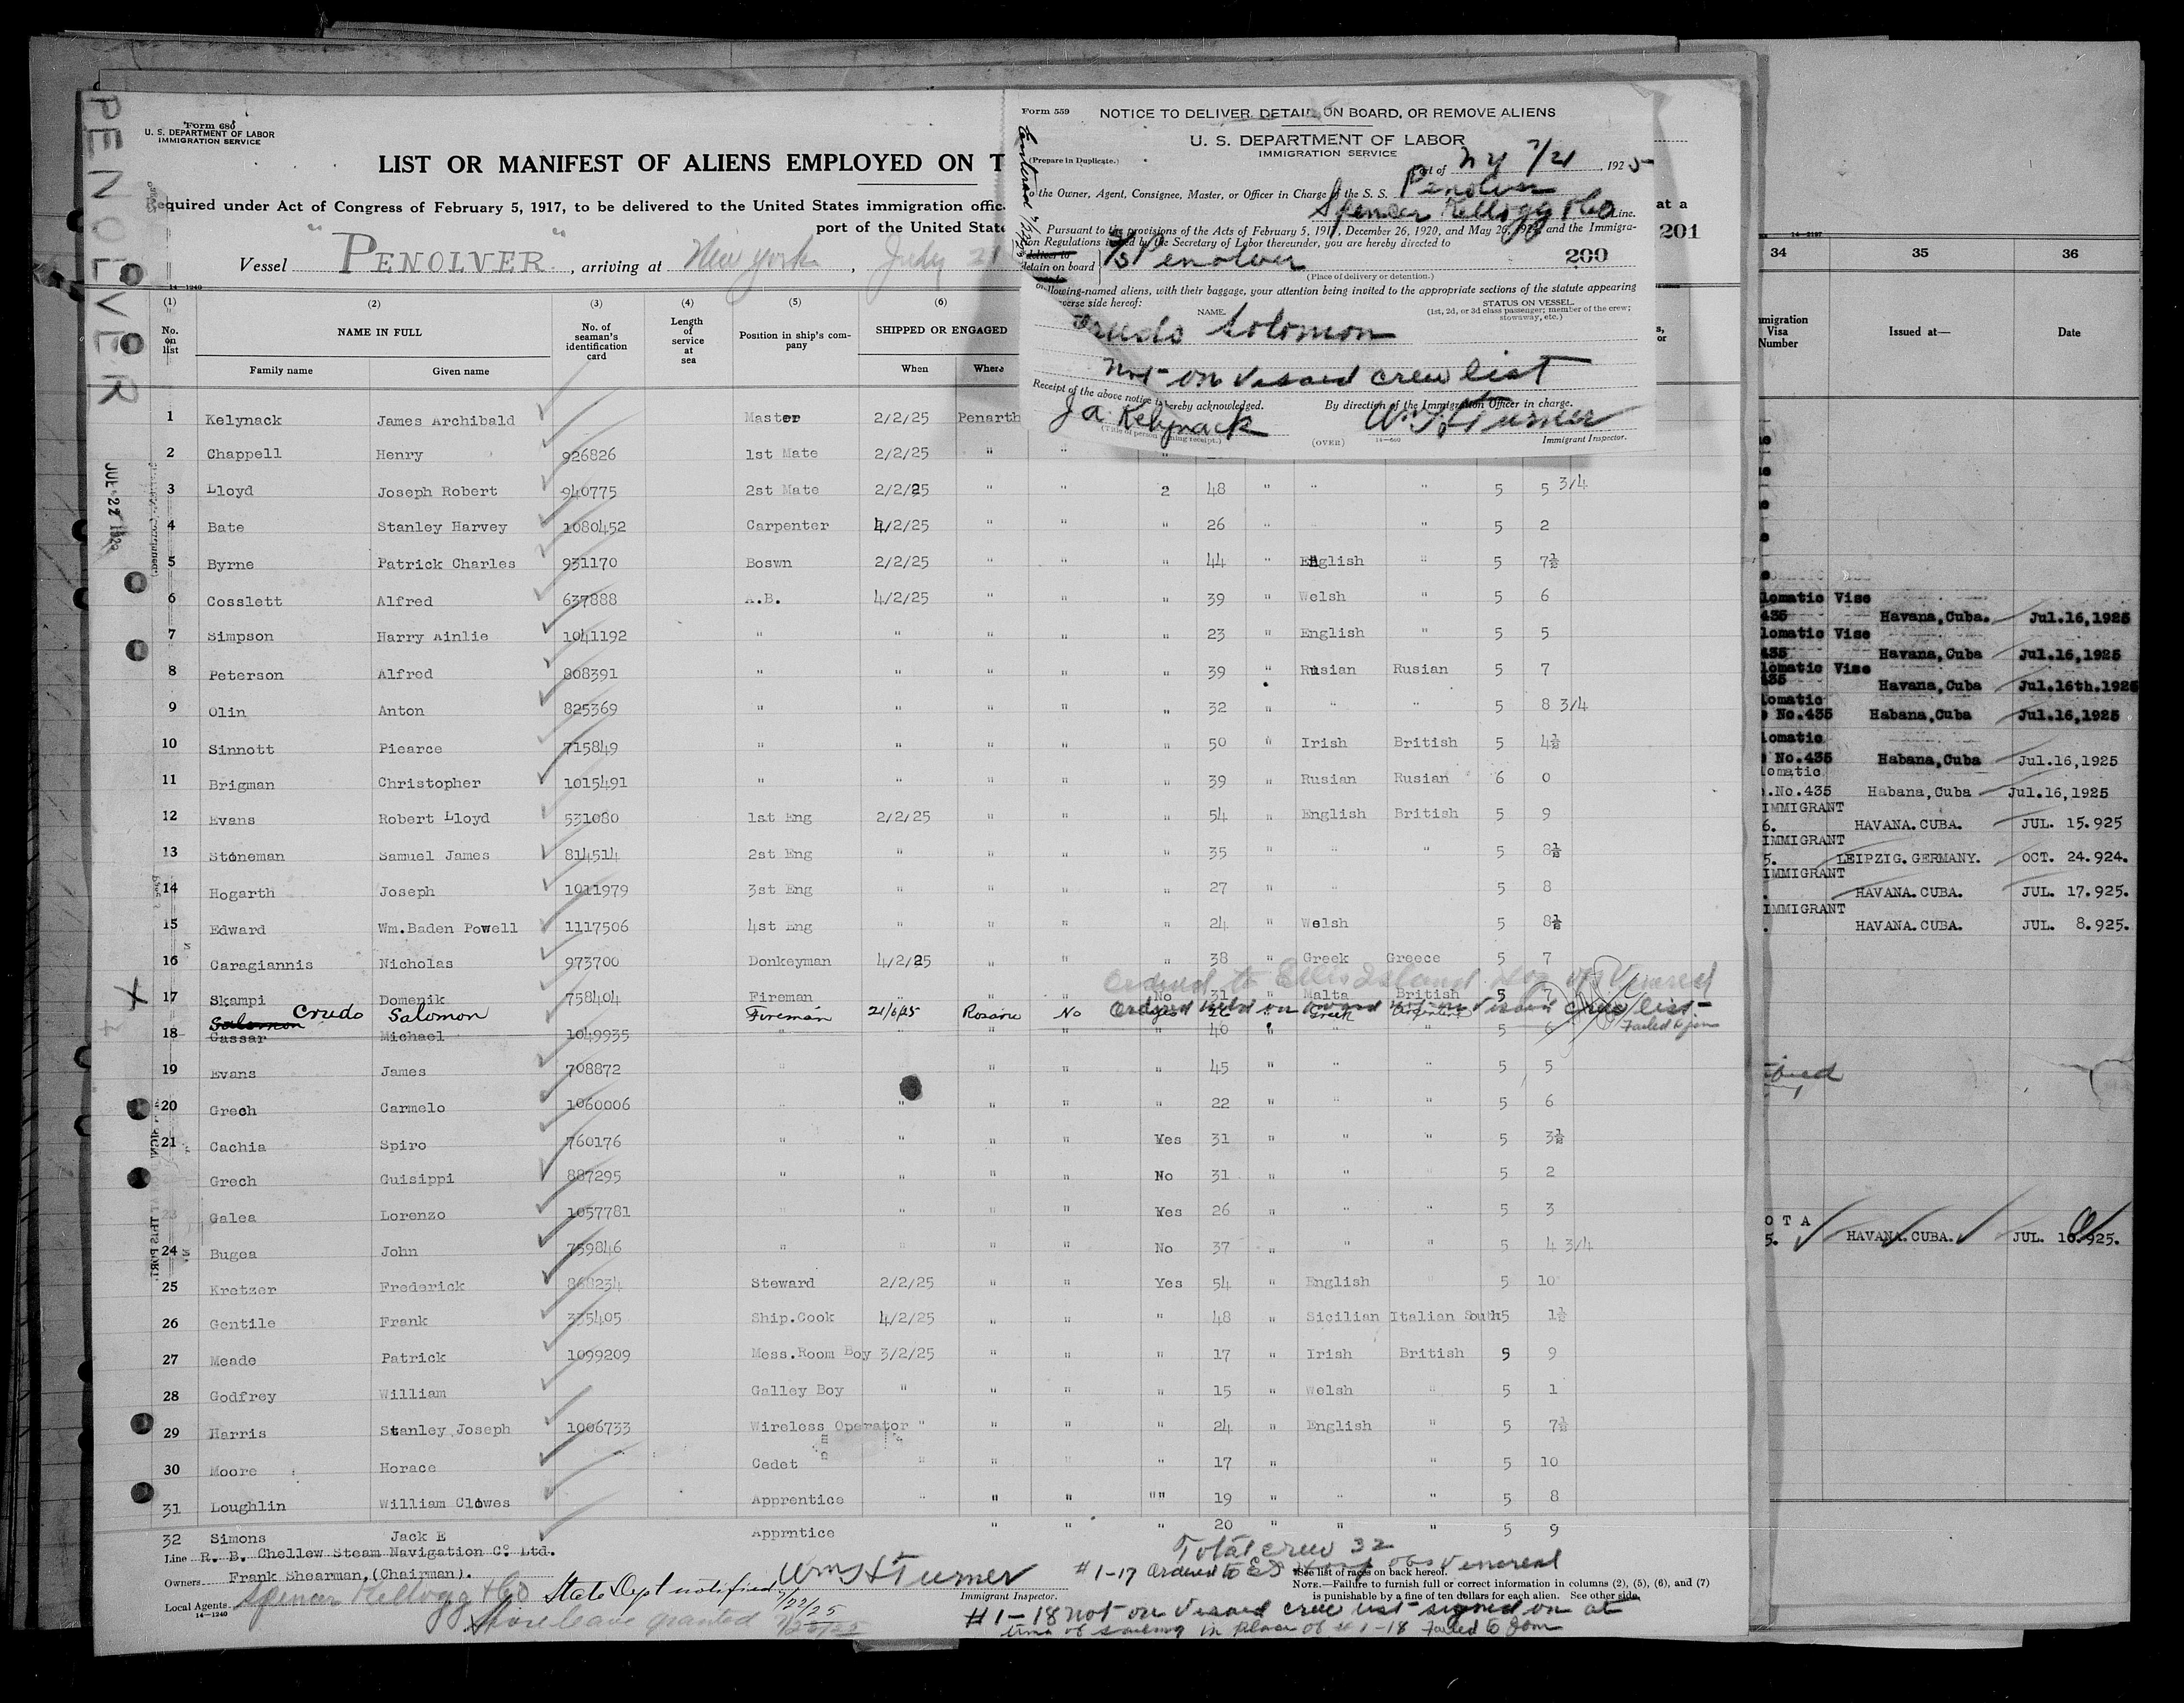 PENOLVER
Form 680
U. S. DEPARTMENT OF LABOR
IMMIGRATION SERVICE
LIST OR MANIFEST OF ALIENS EMPLOYED ON T
equired under Act of Congress of February 5, 1917, to be delivered to the United States immigration offic
port of the United Stat
Vessel "PENOLVER", arriving at New York, July 21
14—1240
at a
201
Form 559
NOTICE TO DELIVER, DETAIN ON BOARD, OR REMOVE ALIENS
U. S. DEPARTMENT OF LABOR
IMMIGRATION SERVICE
(Prepare in Duplicate.)
Port of N Y 7/21, 1925
To the Owner, Agent, Consignee, Master, or Officer in Charge of the S. S. Penolver
Spencer Kellogg & Co Line.
Pursuant to the provisions of the Acts of February 5, 1917, December 26, 1920, and May 26, 1924 and the Immigra-
tion Regulations issued by the Secretary of Labor thereunder, you are hereby directed to
detain on board S/S Penolver 200
(Place of delivery or detention.)
ollowing-named aliens, with their baggage, your attention being invited to the appropriate sections of the statute appearing
verse side hereof:
NAME. STATUS ON VESSEL.
(1st, 2d, or 3d class passenger; member of the crew; stowaway, etc.)
Crudo Solomon
Not on visaed crew list
Receipt of the above notice is hereby acknowledged. By direction of the Immigration Officer in charge.
J A Kelynack Wm H Turner
(Title of person signing receipt.) (OVER) 14—560 Immigrant Inspector.
(1) (2) (3) (4) (5) (6)
No. on list NAME IN FULL No. of seaman's identification card Length of service at sea Position in ship's company SHIPPED OR ENGAGED
Family name Given name When Where
1 Kelynack James Archibald Master 2/2/25 Penarth
2 Chappell Henry 926826 1st Mate 2/2/25 " "
3 Lloyd Joseph Robert 940775 2st Mate 2/2/25 " " 2 48 " " " 5 5 3/4
4 Bate Stanley Harvey 1080452 Carpenter 4/2/25 " " " 26 " " 5 2
5 Byrne Patrick Charles 931170 Boswn 2/2/25 " " " 44 " English " 5 7½
6 Cosslett Alfred 637888 A.B. 4/2/25 " " " 39 " Welsh " 5 6
7 Simpson Harry Ainlie 1041192 " " " " " 23 " English " 5 5
8 Peterson Alfred 808391 " " " " " 39 " Rusian Rusian 5 7
9 Olin Anton 825369 " " " " " 32 " " " 5 8 3/4
10 Sinnott Piearce 715849 " " " " " 50 " Irish British 5 4½
11 Brigman Christopher 1015491 " " " " " 39 " Rusian Rusian 6 0
12 Evans Robert Lloyd 531080 1st Eng 2/2/25 " " " 54 " English British 5 9
13 Stoneman Samuel James 814514 2st Eng " " " " 35 " " " 5 8½
14 Hogarth Joseph 1011979 3st Eng " " " " 27 " " 5 8
15 Edward Wm.Baden Powell 1117506 4st Eng " " " " 24 " Welsh 5 8½
16 Caragiannis Nicholas 973700 Donkeyman 4/2/25 " " " 38 " Greek Greece 5 7
Ordered to Ellis Island Venereal
17 Skampi Domenik 758404 Fireman " " " No 31 " Malta British 5 7
Solomon Crudo Salomon Fireman 21/6/25 Rosario No Ordered held on board not on visaed crew list
18 Cassar Michael 1049935 " " 40 " 5 6 Failed to join
19 Evans James 708872 " " " " 45 " " " 5 5
20 Grech Carmelo 1060006 " " " " " 22 " " " 5 6
21 Cachia Spiro 760176 " " " " Yes 31 " " " 5 3½
Grech Guisippi 887295 " " " " No 31 " " 5 2
23 Galea Lorenzo 1057781 " " " " Yes 26 " " " 5 3
24 Bugea John 759846 " " " No 37 " " " 5 4 3/4
25 Kretzer Frederick 868234 Steward 2/2/25 " " Yes 54 " English " 5 10
26 Gentile Frank 335405 Ship.Cook 4/2/25 " " " 48 " Sicilian Italian South 5 1½
27 Meade Patrick 1099209 Mess.Room Boy 3/2/25 " " " 17 " Irish British 5 9
28 Godfrey William Galley Boy " " " " 15 " Welsh " 5 1
29 Harris Stanley Joseph 1006733 Wireless Operator " " " " 24 " English " 5 7½
30 Moore Horace Cedet " " " " 17 " " " 5 10
31 Loughlin William Clowes Apprentice " " " "" 19 " " " 5 8
32 Simons Jack E Apprntice " " " 20 " " " 5 9
Line R. B. Chellew Steam Navigation Co. Ltd.
Owners Frank Shearman,(Chairman).
Local Agents Spencer Kellogg & Co
14—1240
State Dept notified 7/22/25
Shore leave granted
Wm H Turner
Immigrant Inspector.
Total crew 32
#1-17 ordered to E I obs Venereal
See list of races on back hereof.
NOTE.—Failure to furnish full or correct information in columns (2), (5), (6), and (7)
is punishable by a fine of ten dollars for each alien. See other side.
#1-18 not on visaed crew list signed on at
time of sailing in place of #1-18 Failed to Join
14—2197
34 35 36
mmigration Visa Number Issued at— Date
lomatic Vise
435 Havana,Cuba. Jul.16,1925
lomatic Vise
435 Havana,Cuba Jul.16,1925
lomatic Vise
435 Havana,Cuba Jul.16th.1925
lomatic
No.435 Habana,Cuba Jul.16,1925
lomatic
No.435 Habana,Cuba Jul.16,1925
lomatic
.No.435 Habana,Cuba Jul.16,1925
IMMIGRANT
6. HAVANA.CUBA. JUL. 15.925
IMMIGRANT
5. LEIPZIG.GERMANY. OCT. 24.924.
IMMIGRANT
HAVANA.CUBA. JUL. 17.925.
IMMIGRANT
HAVANA.CUBA. JUL. 8.925.
OTA
5. HAVANA.CUBA. JUL. 10.925.